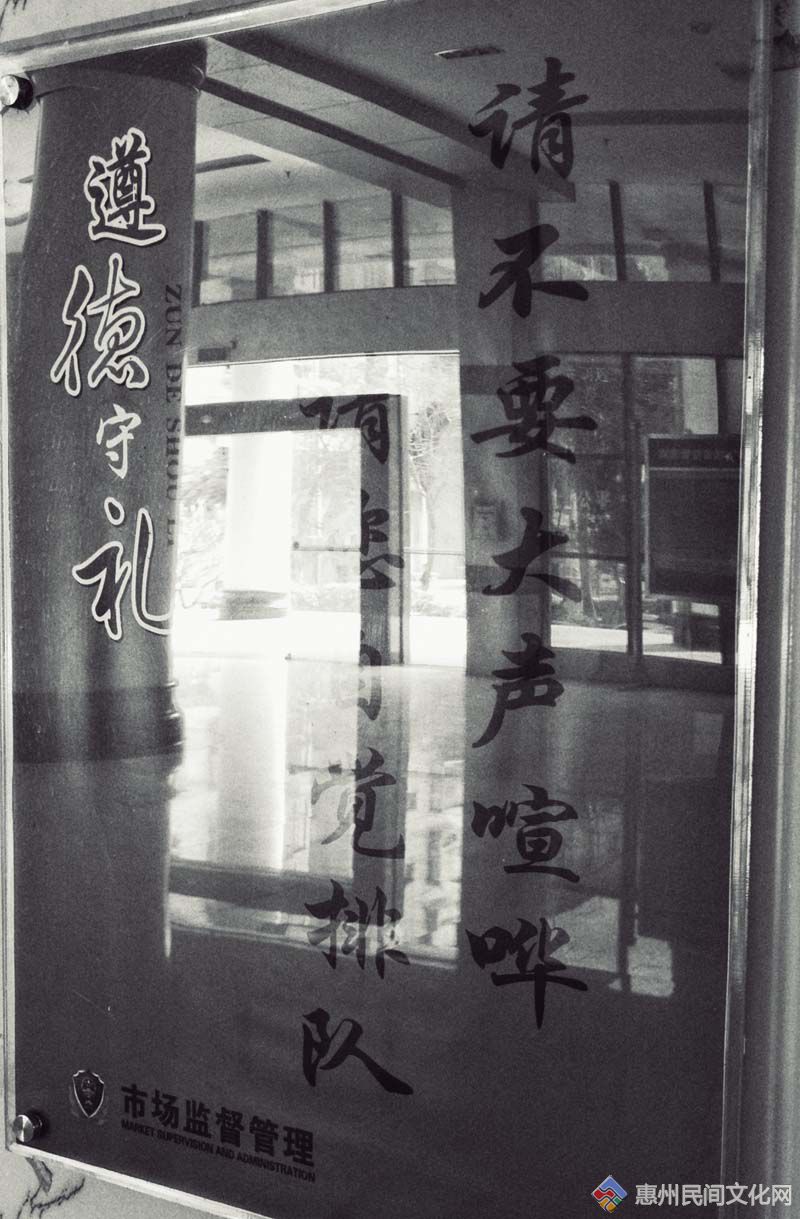 请不要大声喧哗
请您自觉排队
遵德守礼
ZUN DE SHOU LI
市场监督管理
MARKET SUPERVISION AND ADMINISTRATION
惠州民间文化网